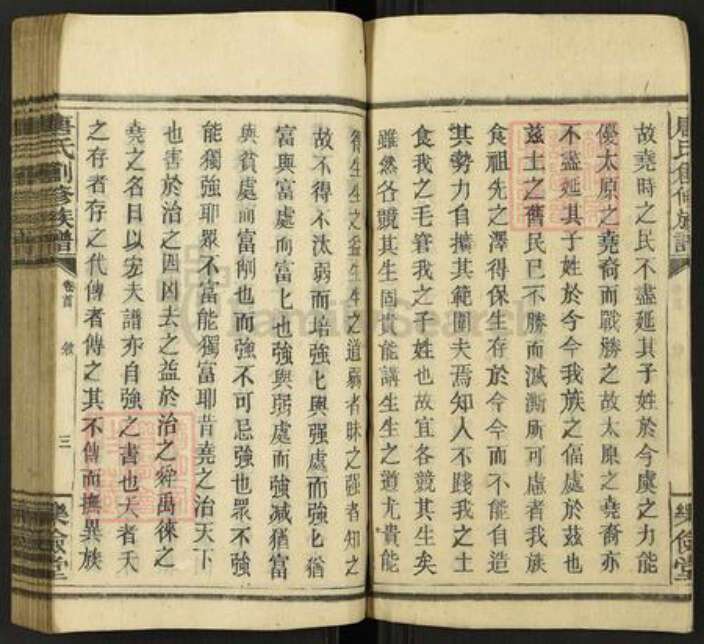 故堯時之民不盡延其子姓於今虞之力能
優太原之堯裔而戰勝之故太原之堯裔亦
不盡延其子姓於今今我族之偪處於茲也
茲土之舊民已不勝而滅澌所可慮者我族
食祖先之澤得保生存於今今而不能自造
其勢力自擴其範圍夫焉知人不踐我之土
食我之毛簒我之子姓也故宜各競其生矣
雖然各競其生固貴能講生生之道尤貴能
得生生之益生生之道弱者昧之强者知之
故不得不汰弱而培強匕與强處而強匕猶
富與富處而富匕也強與弱處而強減猶富
與貧處而富削也而強不可忌強也眾不強
能獨強耶眾不富能獨富耶昔堯之治天下
也害於治之四凶去之益於治之舜禹徠之
堯之名目以宏夫譜亦自強之書也天者夭
之存者存之代傳者傳之其不傳而撫異族
唐氏創修族譜
卷首 敘
三
樂儉堂
唐氏創修族譜
樂儉堂
FamilySearch